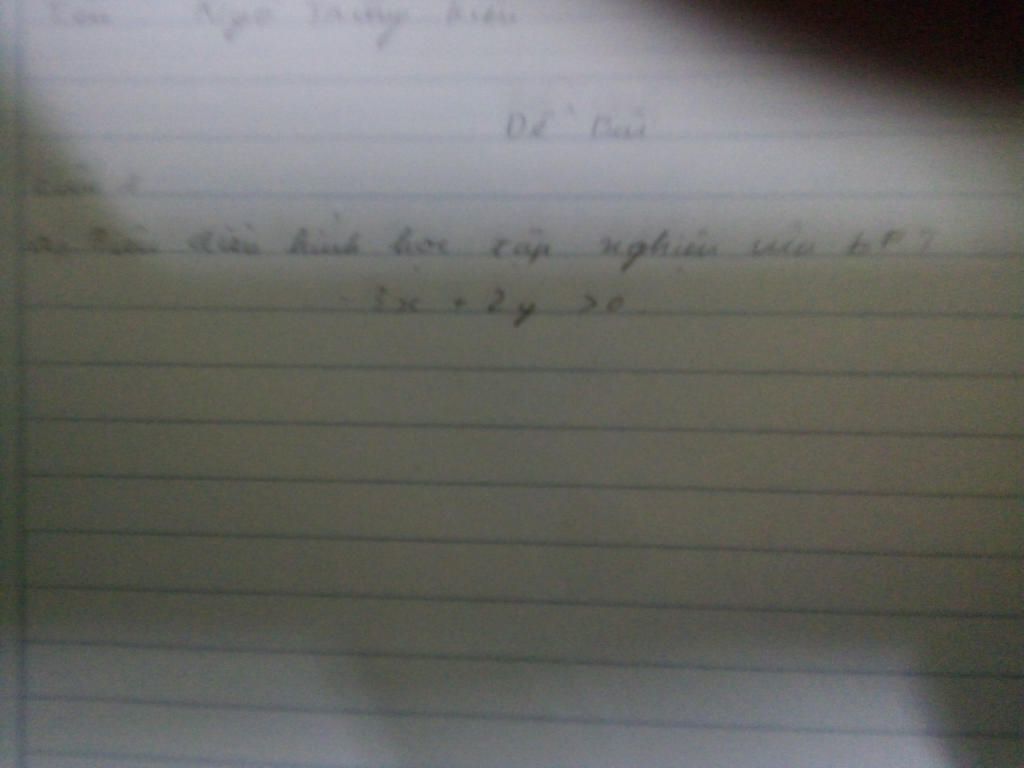 Tên Ngô
Đề Bài
Câu 1
a. Biểu diễn hình học tập nghiệm của bPT
-3x + 2y > 0